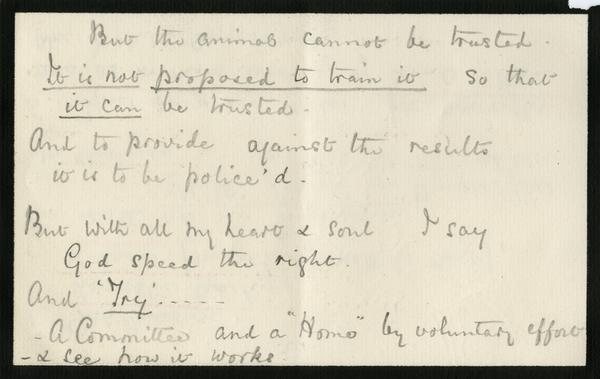 But the animal cannot be trusted.
It is not proposed to train it so that
it can be trusted.
And to provide against the results
it is to be police'd.
But with all my heart & soul I say
God speed the right.
And 'Try' -----
- A Committee and a "Home" by voluntary effort
- & see how it works.